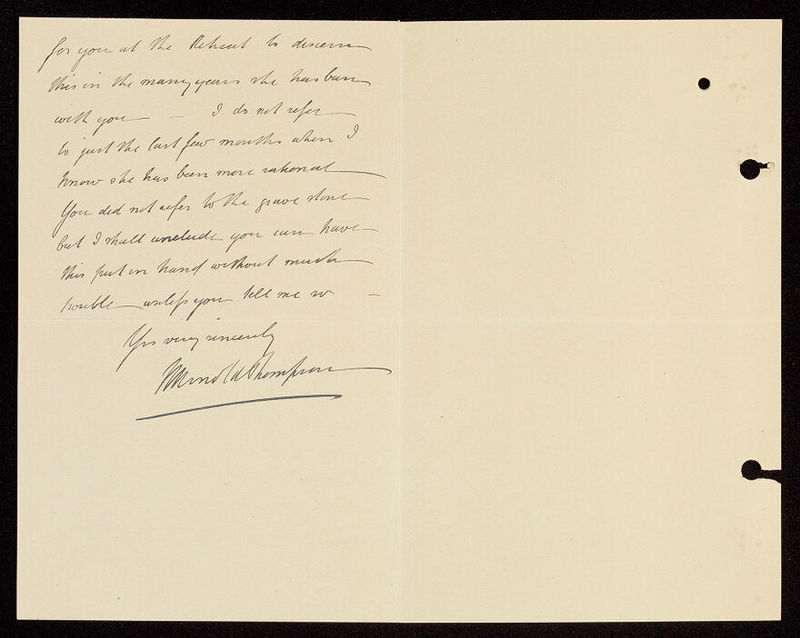 for you at the Retreat to discern
this in the many years she has been
with you — I do not refer
to just the last few months when I
know she has been more rational
You did not refer to the grave stone
but I shall conclude you can have
this put in hand without much
trouble unless you tell me so —
Yrs very sincerely
Arnold Thompson